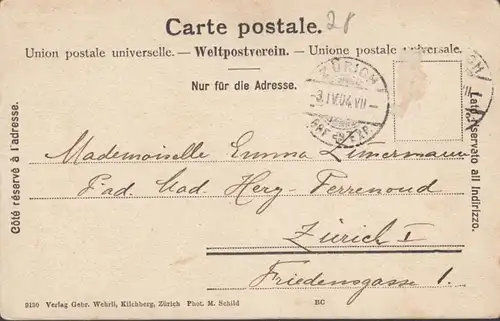 Carte postale. 28
Union postale universelle. — Weltpostverein. — Unione postale universale.
Nur für die Adresse.
ZÜRICH
3.IV.04.VII-
BRF. EXP.
Côté réservé à l'adresse.
Lato riservato all indirizzo.
Mademoiselle Emma Zimermann
Pad. Mad Herg-Perrenoud
Zürich I
Friedensgasse 1.
9130 Verlag Gebr. Wehrli, Kilchberg, Zürich Phot. M. Schild BC